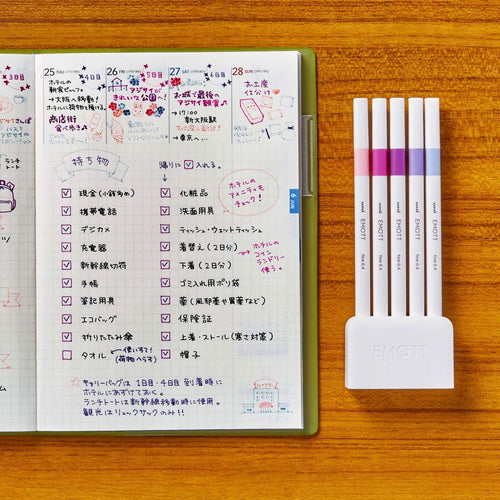 25 THU
4日目
ホテルの
朝食ビュッフェ
→大阪へ移動!
ホテルに荷物を預ける。
商店街
食べ歩き
26 FRI
5日目
アジサイが
きれいな公園へ!
27 SAT
6日目
お城で最後の
アジサイ観賞
→17:00
新大阪駅
→東京へ…
28 SUN
お土産
仕分け
3日目
ランチ
トート
持ち物
帰りに ✓ 入れる。
ホテルの
アメニティも
チェック!
6 JUN
現金(小銭多め)
携帯電話
デジカメ
充電器
新幹線切符
手帳
筆記用具
エコバッグ
折りたたみ傘
タオル
使いすて!
(荷物へらす)
化粧品
洗面用具
ティッシュ・ウェットティッシュ
着替え(2日分)
下着(2日分)
ゴミ入れ用ポリ袋
薬(風邪薬や胃薬など)
保険証
上着・ストール(寒さ対策)
帽子
ホテルの
コイン
ランドリー
使う。
☆キャリーバッグは1日目・4日目到着時に
ホテルにあずけておく。
ランチトートは新幹線移動時に使用。
観光はリュックサックのみ!!
uni EMOTT fine 0.4
uni EMOTT fine 0.4
uni EMOTT fine 0.4
uni EMOTT fine 0.4
uni EMOTT fine 0.4
EMOTT